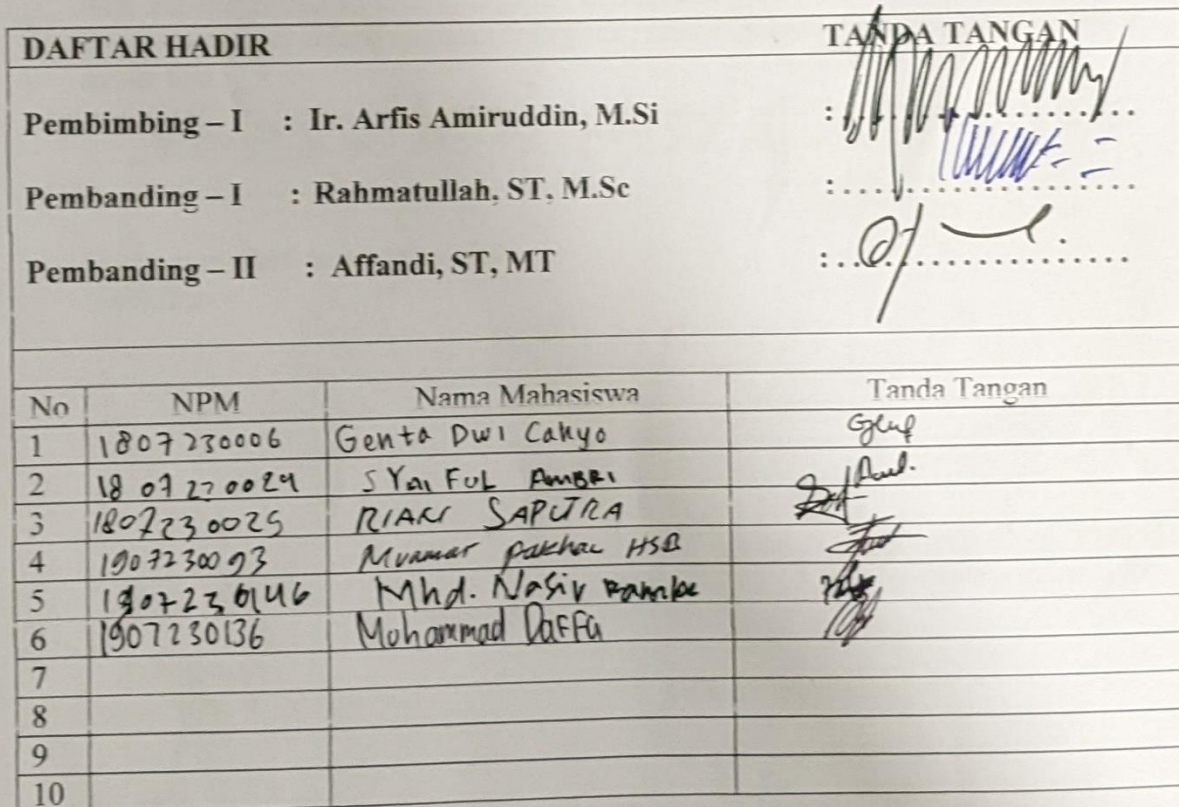 DAFTAR HADIR TANDA TANGAN
Pembimbing – I : Ir. Arfis Amiruddin, M.Si :..............
Pembanding – I : Rahmatullah, ST, M.Sc :..............
Pembanding – II : Affandi, ST, MT :..............
No NPM Nama Mahasiswa Tanda Tangan
1 1807230006 Genta Dwi Cahyo
2 SYAIFUL AMBRI
3 1807230025 SAPUTRA
4 1907230093 HSB
5 1907230146 Mhd. Nasir
6 1907230136 Mohammad Daffa
7
8
9
10